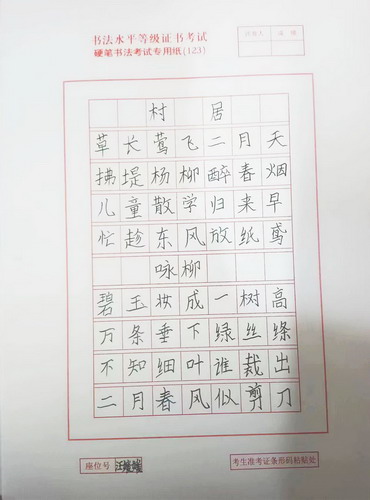 书法水平等级证书考试
硬笔书法考试专用纸(123)
成绩
村居
草长莺飞二月天
拂堤杨柳醉春烟
儿童散学归来早
忙趁东风放纸鸢
咏柳
碧玉妆成一树高
万条垂下绿丝绦
不知细叶谁裁出
二月春风似剪刀
座位号
考生准考证条形码粘贴处